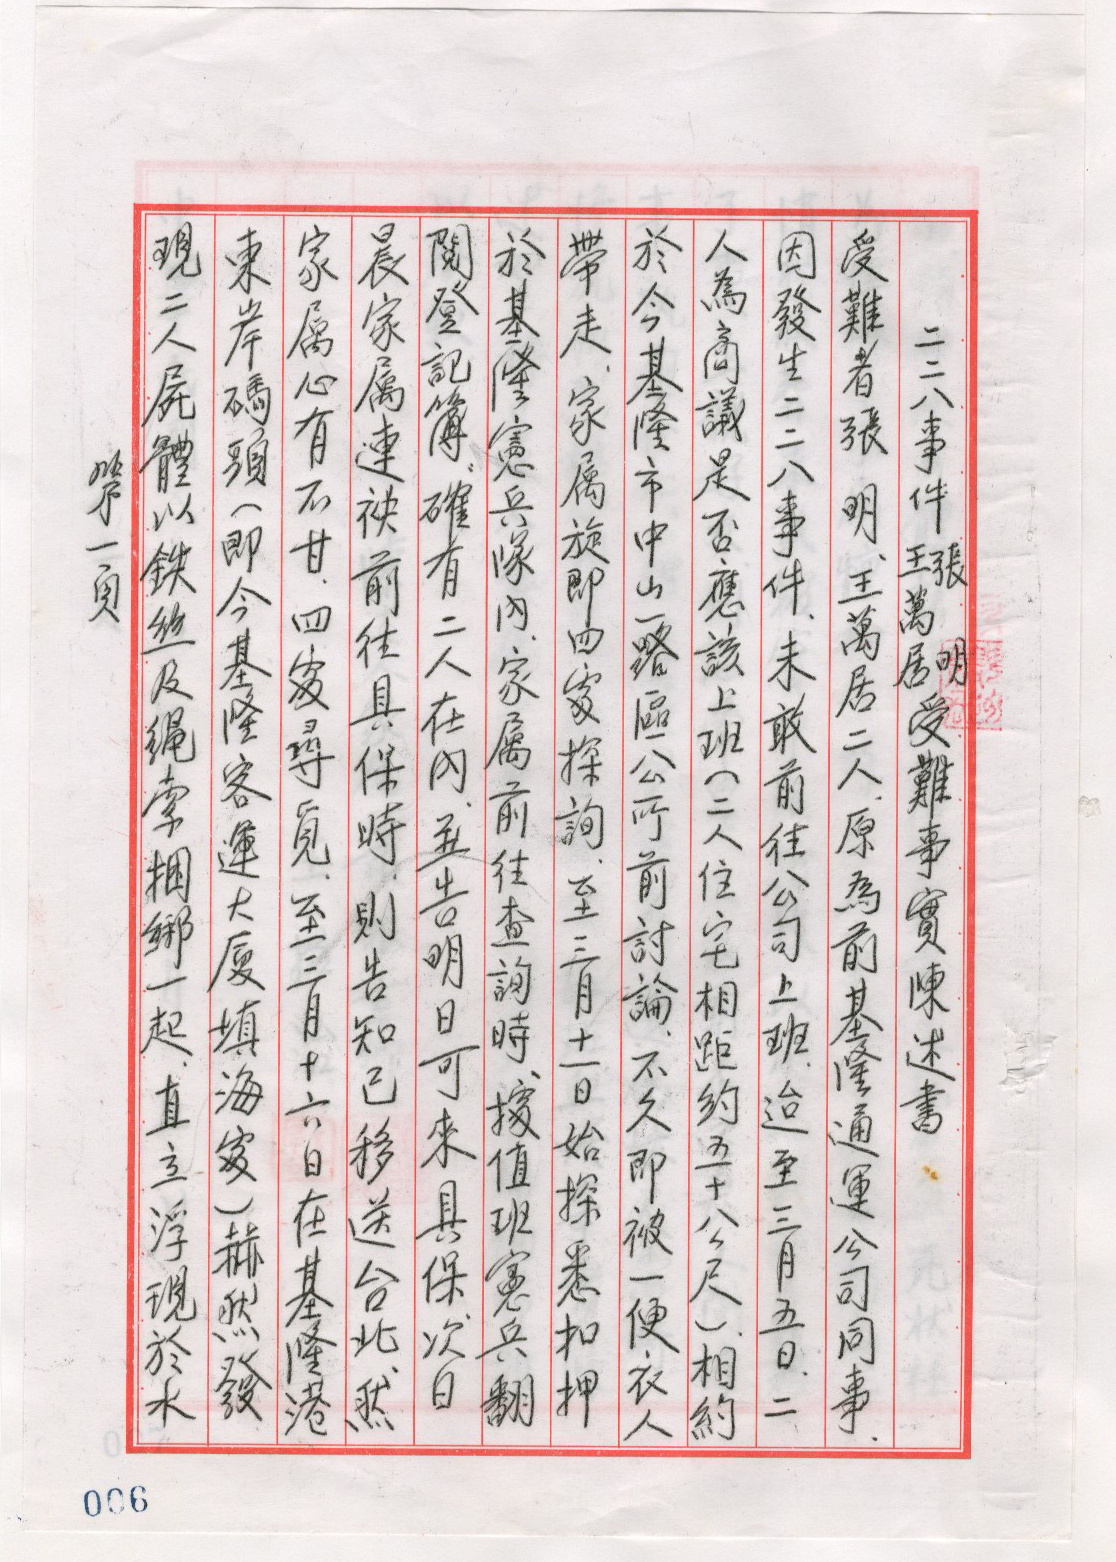 二二八事件張明王萬居受難事實陳述書
受難者張明、王萬居二人、原為前基隆通運公司同事、
因發生二二八事件、未敢前往公司上班、迨至三月五日、二
人為商議是否應該上班(二人住宅相距約五十八公尺)、相約
於今基隆市中山一路區公所前討論、不久即被一便衣人
帶走、家属旋即四家探詢、至三月十一日始探悉扣押
於基隆憲兵隊內、家属前往查詢時、據值班憲兵翻
閱登記簿、確有二人在內、並告明日可來具保、次日
晨家属連袂前往具保時、則告知已移送台北、然
家属心有不甘、四處尋覓、至三月十六日在基隆港
東岸碼頭(即今基隆客運大廈填海處)赫然發
現二人屍體以鉄丝及繩索捆綁一起、直立浮現於水
第一頁
006